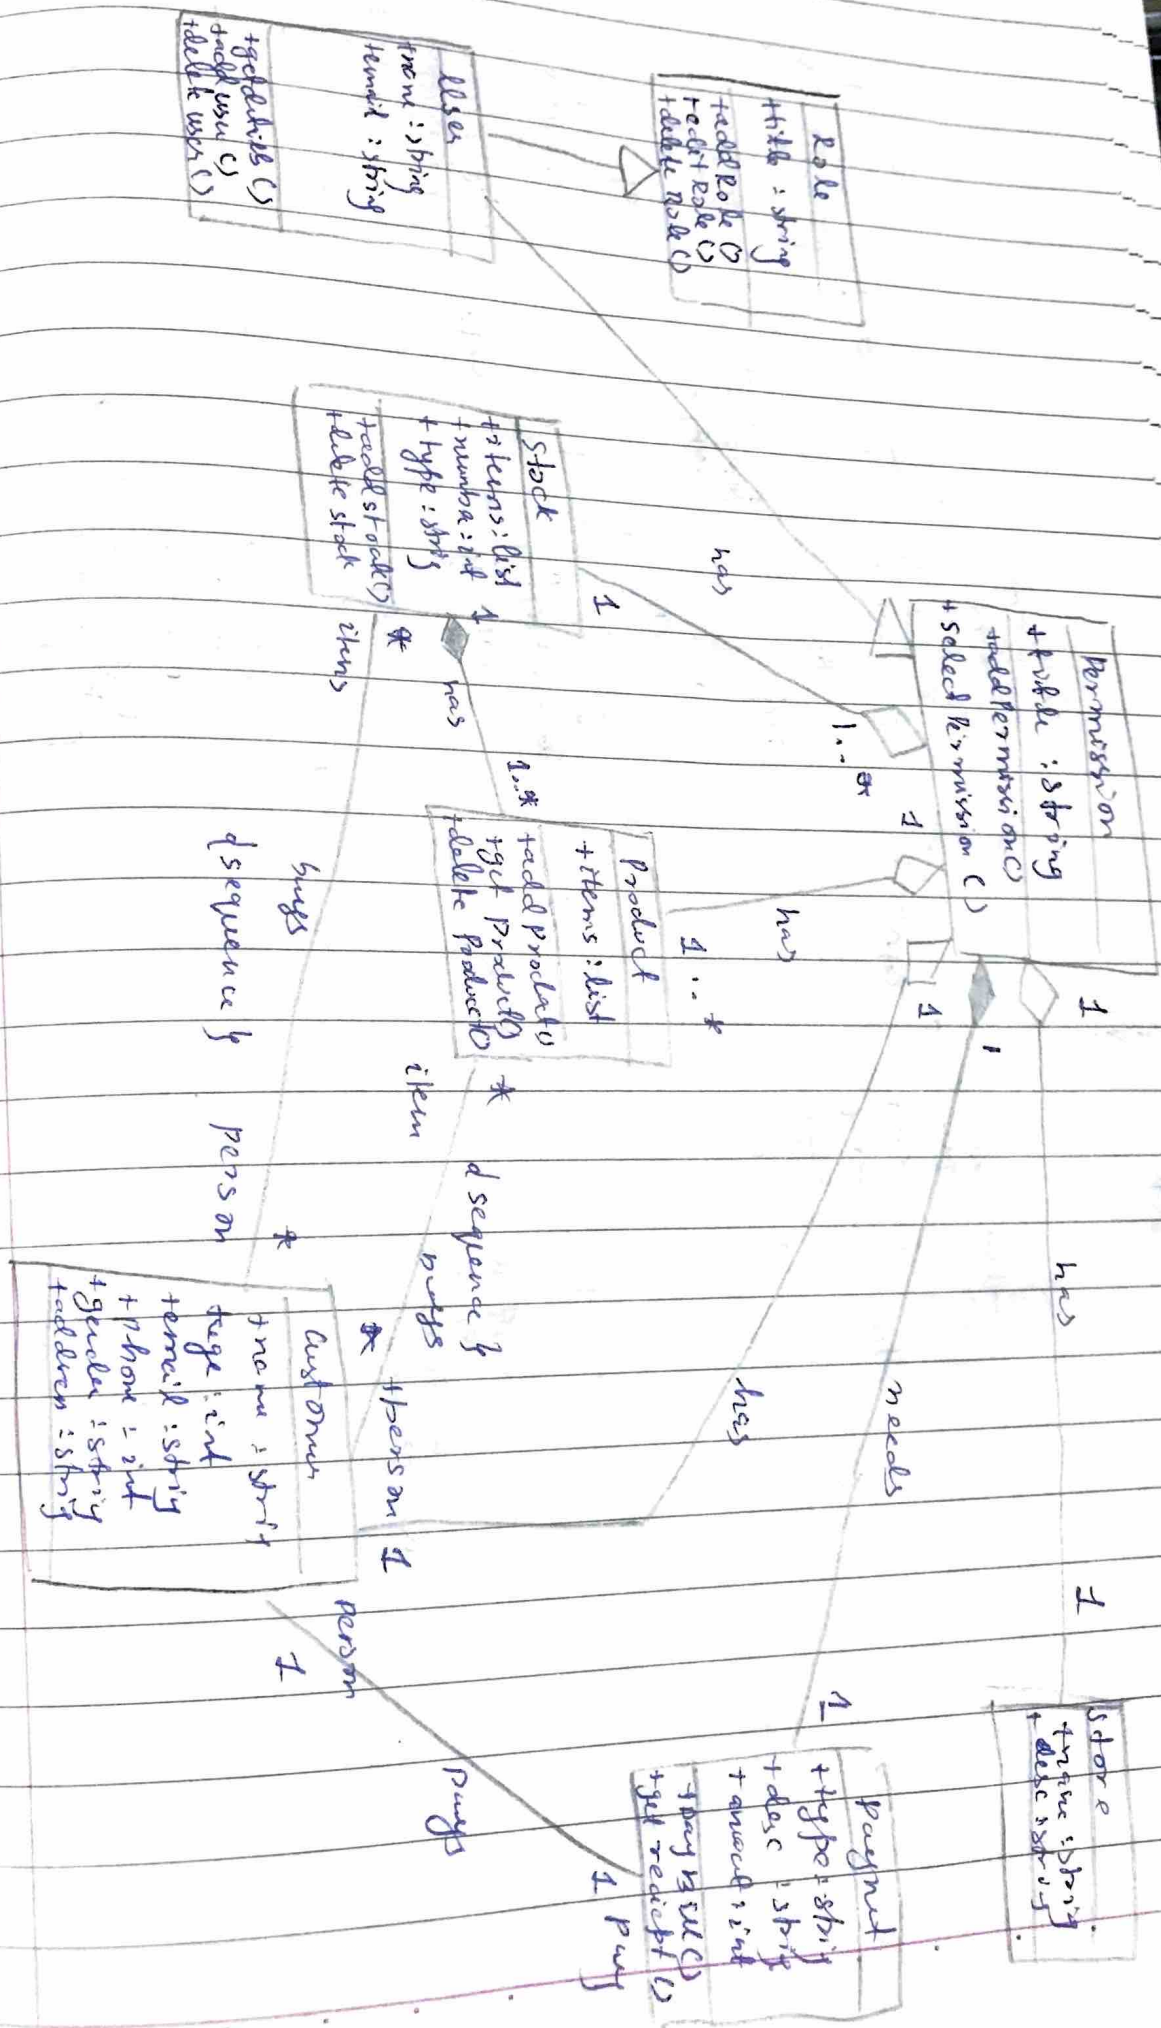 Role
+title : string
+addRole()
+editRole()
+delete role()
User
+name : string
+email : string
+getdetails()
+add user()
+delete user()
Permission
+title : string
+addPermission()
+select Permission()
has
1
1..*
1
has
1...*
1
,
1
has
needs
has
1
1
Stock
+items : list
+number : int
+type : string
+add stock()
+delete stock
1
has
1..*
*
items
buys
{sequence}
person
*
Product
+items : list
+add product()
+get Product()
+delete Product()
*
item
{sequence}
buys
*
+person
1
Customer
+name : strin
+age : int
+email : string
+phone : int
+gender : string
+address : string
person
1
Pays
1 Pay
Store
+name : string
+desc : string
Paymet
+type : string
+desc : string
+amout : int
+pay Bill()
+get reciept()